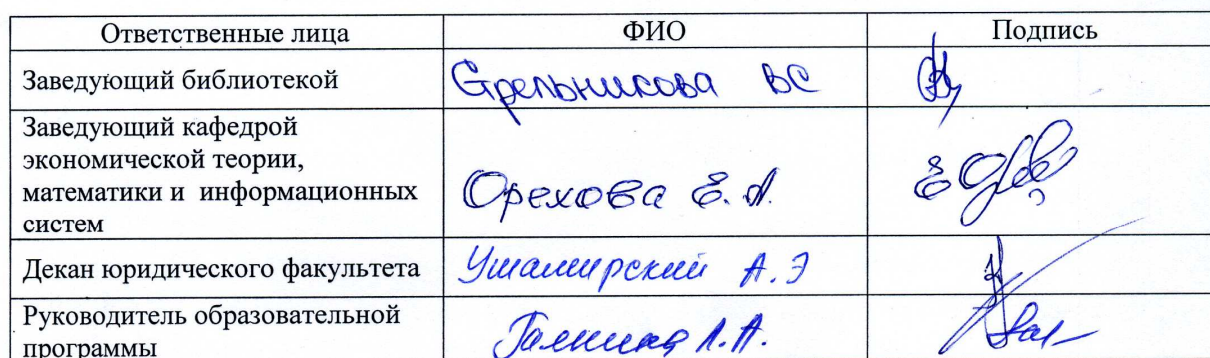 Ответственные лица ФИО Подпись
Заведующий библиотекой Стрельникова ВС
Заведующий кафедрой
экономической теории,
математики и информационных
систем
Орехова Е. А.
Декан юридического факультета Ушамирский А. Э
Руководитель образовательной
программы
Л. А.